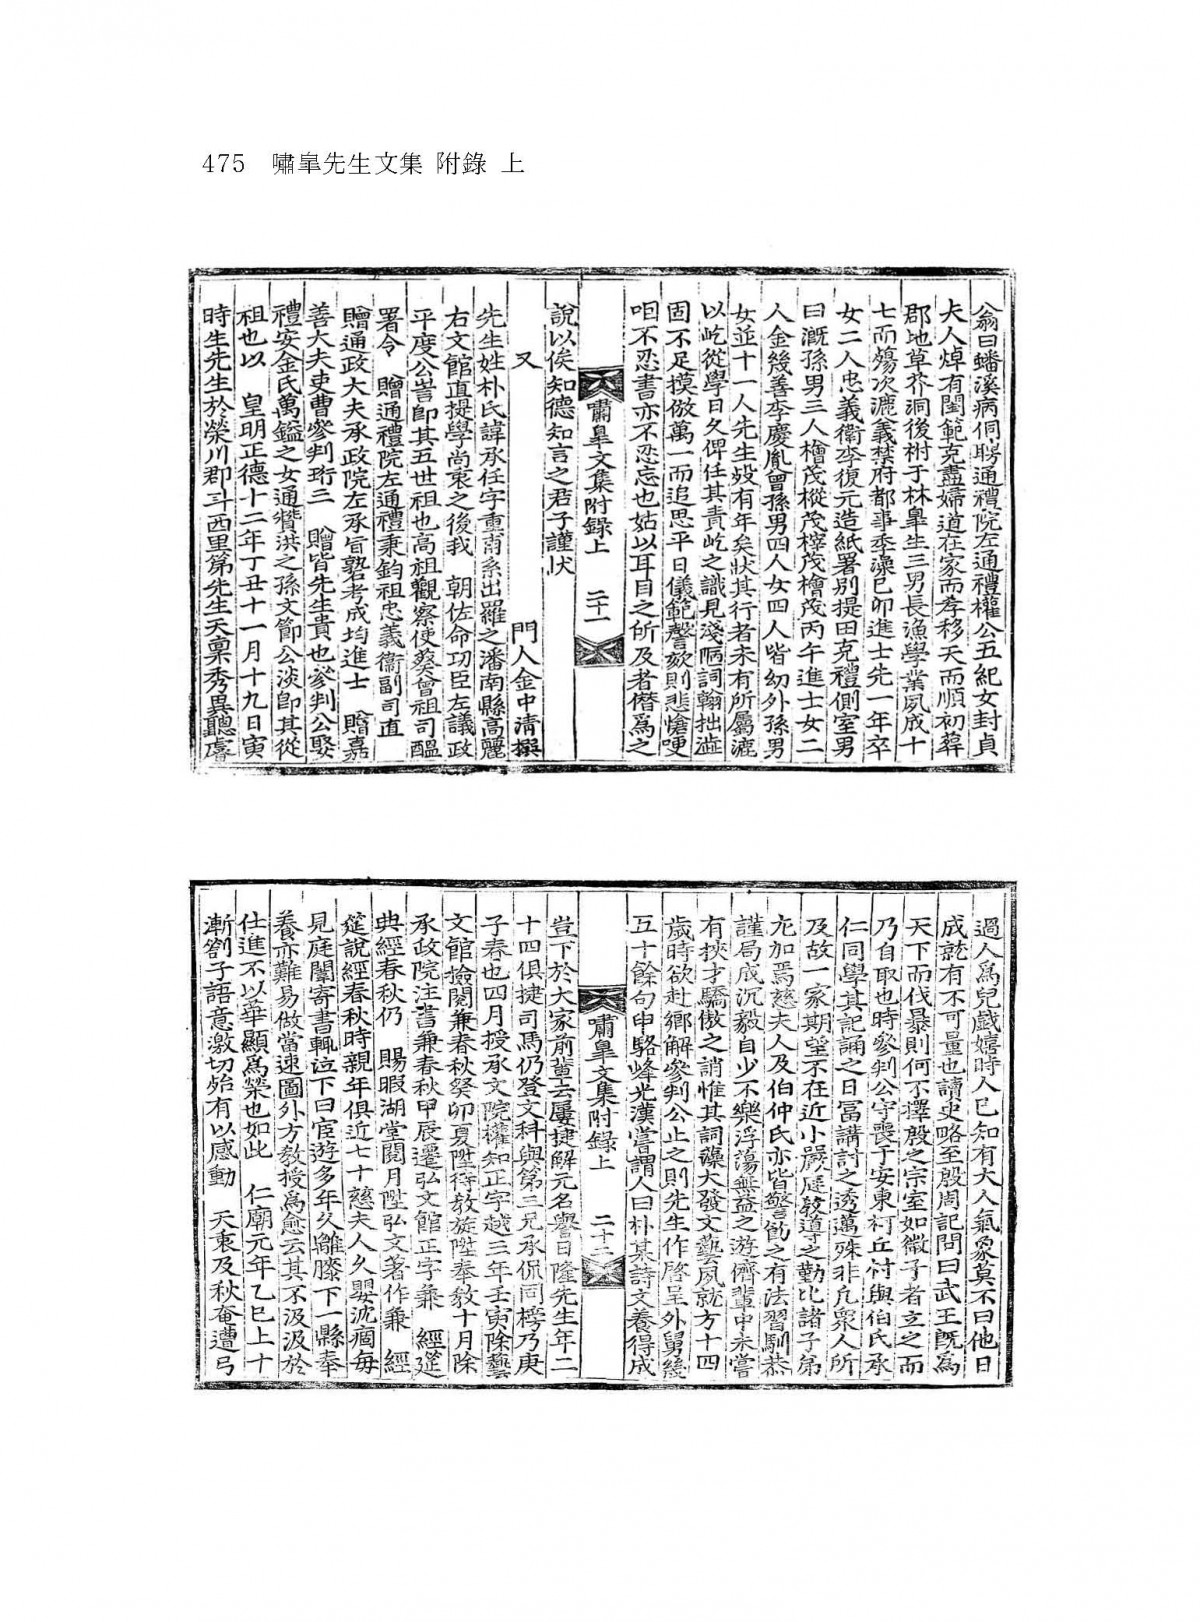 475 嘯皐先生文集 附錄 上
翁曰蟠溪病侗聘通禮院左通禮權公五紀女封貞
夫人焯有閨範克盡婦道在家而孝移天而順初葬
郡地草芥洞後祔于林皐生三男長漁學業夙成十
七而殤次漉義禁府都事季澡己卯進士先一年卒
女二人忠義衛李復元造紙署別提田克禮側室男
曰漑孫男三人檜茂樅茂榟茂檜茂丙午進士女二
人金幾善李慶胤曾孫男四人女四人皆幼外孫男
女並十一人先生歿有年矣狀其行者未有所屬漉
以屹從學日久俾任其責屹之識見淺陋詞翰拙澁
固不足摸倣萬一而追思平日儀範謦欬則悲愴哽
咽不忍書亦不忍忘也姑以耳目之所及者僭爲之
嘯皐文集附錄上 二十一
說以俟知德知言之君子謹狀
又
門人金中淸撰
先生姓朴氏諱承任字重甫系出羅之潘南縣高麗
右文館直提學尙衷之後我 朝佐命功臣左議政
平度公訔卽其五世祖也高祖觀察使葵曾祖司醞
署令 贈通禮院左通禮秉鈞祖忠義衛副司直
贈通政大夫承政院左承旨塾考成均進士 贈嘉
善大夫吏曹參判珩三 贈皆先生貴也參判公娶
禮安金氏萬鎰之女通贊洪之孫文節公淡卽其從
祖也以 皇明正德十二年丁丑十一月十九日寅
時生先生於榮川郡斗西里第先生天稟秀異聽睿
過人爲兒戲嬉時人已知有大人氣象莫不曰他日
成就有不可量也讀史略至殷周記問曰武王旣爲
天下而伐暴則何不擇殷之宗室如微子者立之而
乃自取也時參判公守喪于安東柯丘村與伯氏承
仁同學其記誦之日富講討之透邁殊非凡衆人所
及故一家期望不在近小嚴庭敎導之勤比諸子弟
尤加焉慈夫人及伯仲氏亦皆警勖之有法習馴恭
謹局成沉毅自少不樂浮蕩無益之游儕輩中未嘗
有挾才驕傲之誚惟其詞藻大發文藝夙就方十四
歲時欲赴鄕解參判公止之則先生作啓呈外舅幾
五十餘句申駱峰光漢嘗謂人曰朴某詩文養得成
嘯皐文集附錄上 二十二
豈下於大家前輩云屢捷解元名譽日隆先生年二
十四俱捷司馬仍登文科與第三兄承侃同榜乃庚
子春也四月授承文院權知正字越三年壬寅除藝
文館撿閱兼春秋癸卯夏陞待敎旋陞奉敎十月除
承政院注書兼春秋甲辰遷弘文館正字兼 經筵
典經春秋仍 賜暇湖堂閱月陞弘文著作兼 經
筵說經春秋時親年俱近七十慈夫人久嬰沈痼每
見庭闈寄書輒泣下曰宦遊多年久離膝下一縣奉
養亦難易做當速圖外方敎授爲愈云其不汲汲於
仕進不以華顯爲榮也如此 仁廟元年乙巳上十
漸劄子語意激切殆有以感動 天衷及秋奄遭弓